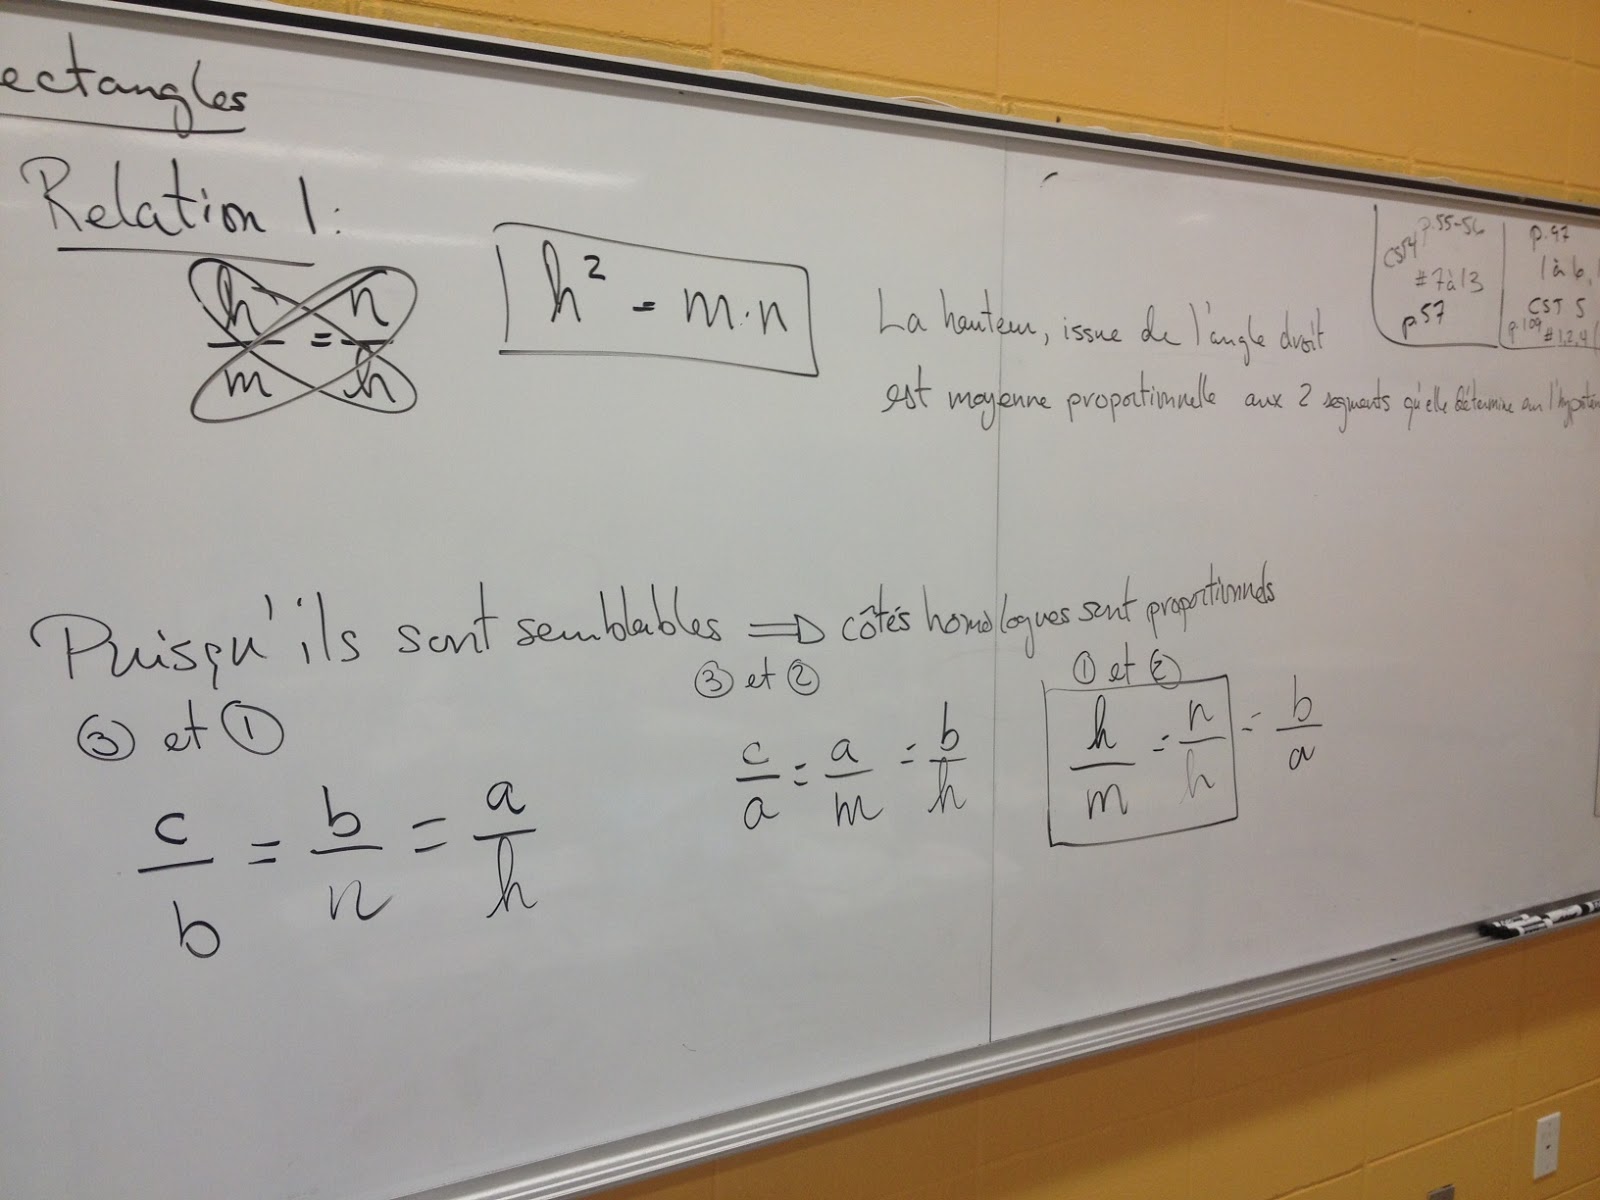 ectangles
Relation 1:
h/m = n/h
h² = m·n
La hauteur, issue de l'angle droit
est moyenne proportionnelle aux 2 segments qu'elle détermine sur l'hypotén
CST4 p.55-56
#7à13
p.57
p.97
1 à 6,
CST 5
p.109 #1,2,4
Puisqu'ils sont semblables ⇒ côtés homologues sont proportionnels
③ et ①
c/b = b/n = a/h
③ et ②
c/a = a/m = b/h
① et ②
h/m = n/h = b/a